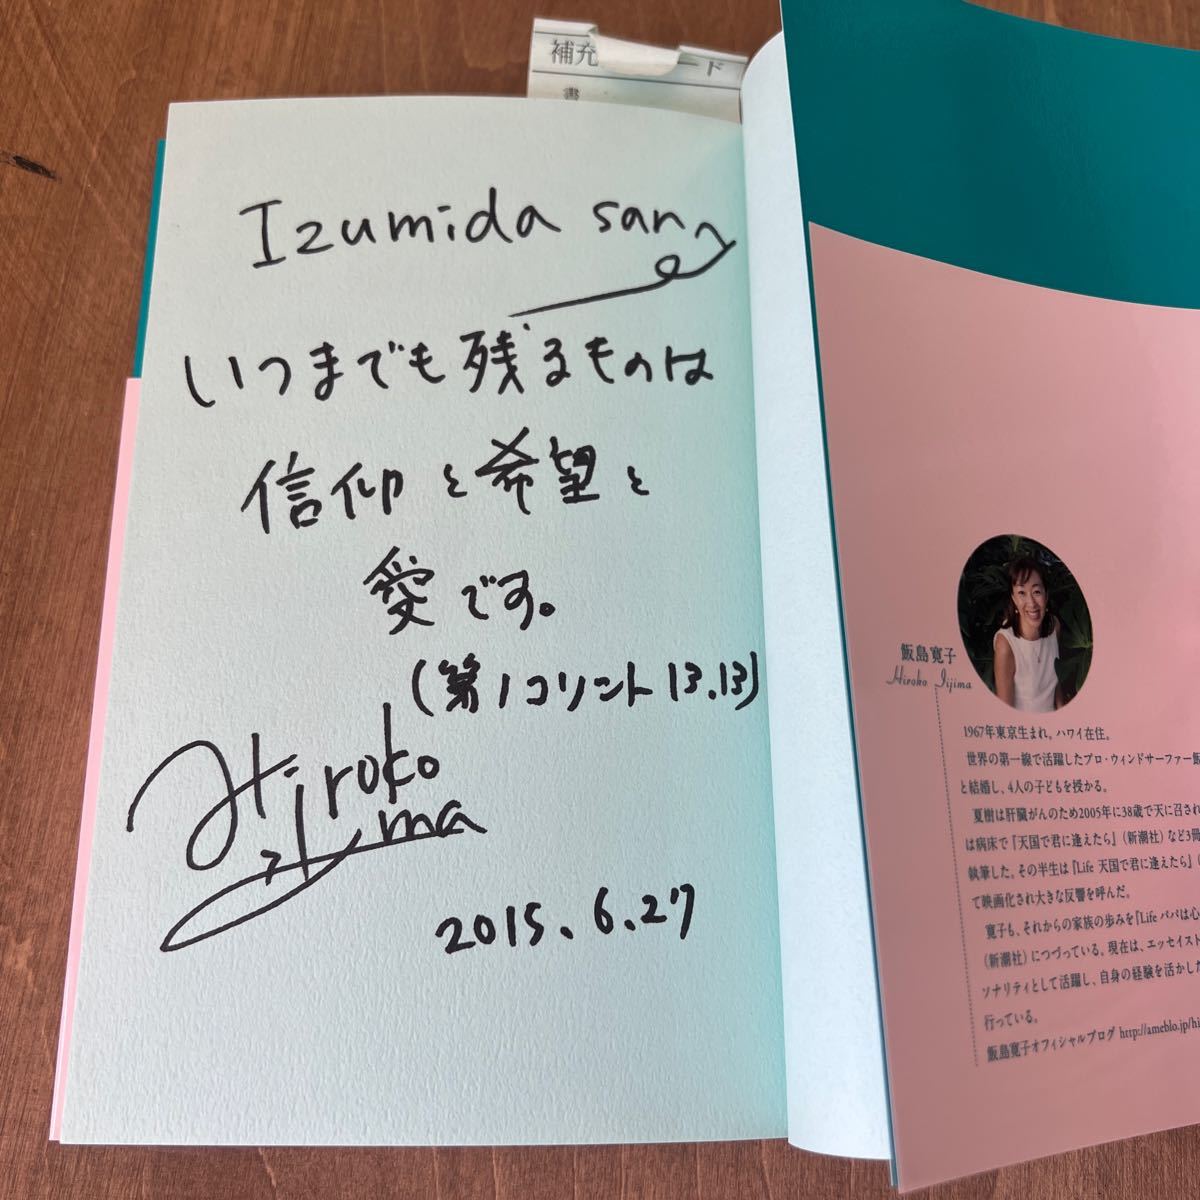 補充
ド
書
Izumida san
いつまでも残るものは
信仰と希望と
愛です。
(第1コリント13.13)
Hiroko
Iijima
2015.6.27
飯島寛子
Hiroko Iijima
1967年東京生まれ。ハワイ在住。
世界の第一線で活躍したプロ・ウィンドサーファー飯
と結婚し、4人の子どもを授かる。
夏樹は肝臓がんのため2005年に38歳で天に召され
は病床で『天国で君に逢えたら』(新潮社)など3冊
執筆した。その半生は『Life 天国で君に逢えたら』(
て映画化され大きな反響を呼んだ。
寛子も、それからの家族の歩みを『Life パパは心
(新潮社)につづっている。現在は、エッセイスト
ソナリティとして活躍し、自身の経験を活かした
行っている。
飯島寛子オフィシャルブログ http://ameblo.jp/hi